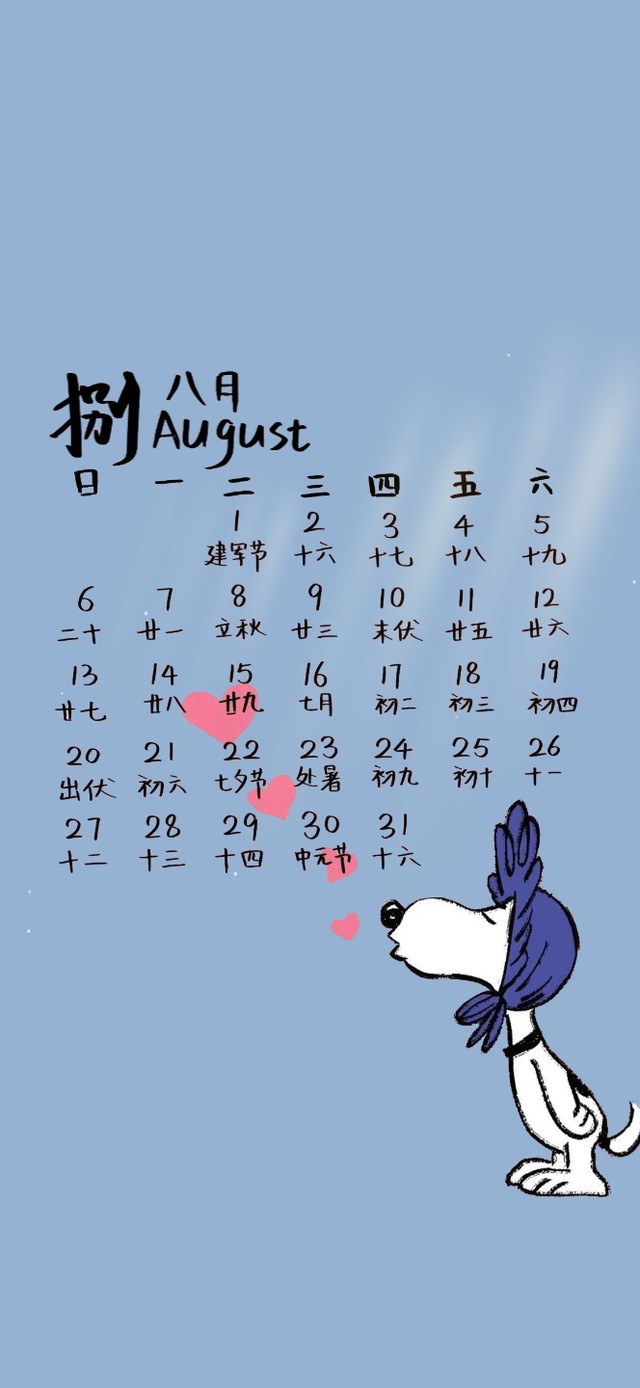 捌 八月
August
日 一 二 三 四 五 六
1 2 3 4 5
建军节 十六 十七 十八 十九
6 7 8 9 10 11 12
二十 廿一 立秋 廿三 末伏 廿五 廿六
13 14 15 16 17 18 19
廿七 廿八 廿九 七月 初二 初三 初四
20 21 22 23 24 25 26
出伏 初六 七夕节 处暑 初九 初十 十一
27 28 29 30 31
十二 十三 十四 中元节 十六